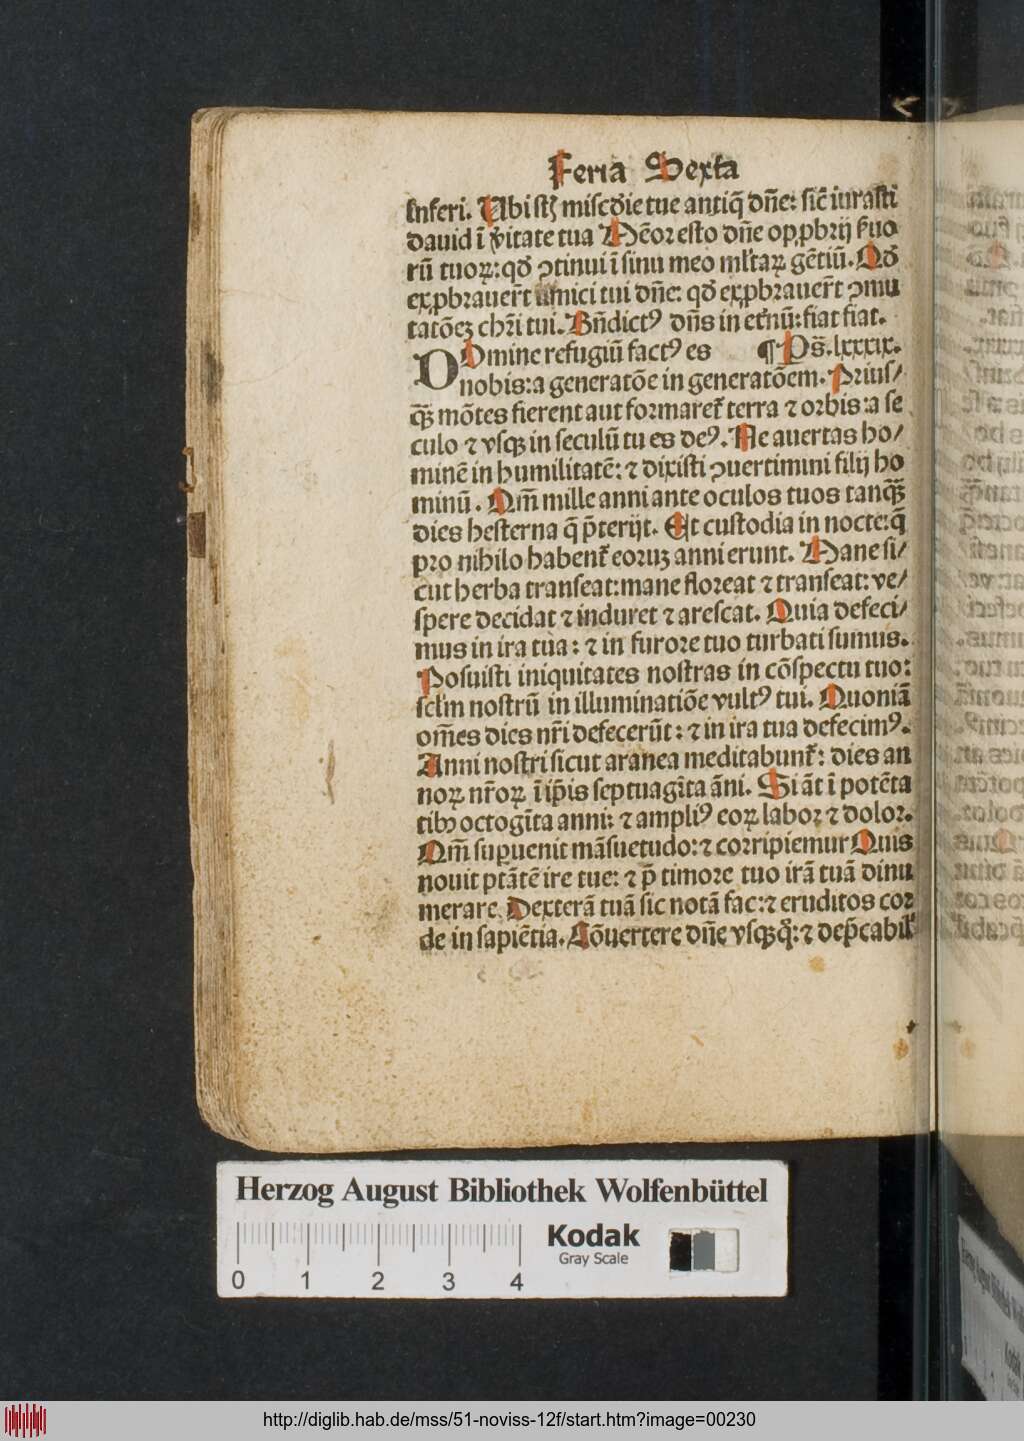 Feria Sexta
inferi. Ubi sūt miscðie tue antiq̄ dn̄e: sic̄ iurasti
dauid ī v̄itate tua Mēor esto dn̄e opꝓbrij s̄uo
rū tuoꝝ: qð ꝯtinui ī sinu meo ml̄taꝝ gētiū. Qð
exꝓbrauer̄t inimici tui dn̄e: qð exꝓbrauer̄t ꝯmu
tatōeꝫ chr̄i tui. Bn̄dictꝰ dn̄s in et̄nū: fiat fiat.
DOmine refugiū factꝰ es ¶ Ps̄. lxxxix.
nobis: a generatōe in generatōem. Prius/
qꝫ̄ mōtes fierent aut formaret̄ terra ⁊ orbis: a se
culo ⁊ vsqꝫ in seculū tu es deꝰ. Ne auertas ho/
minē in humilitatē: ⁊ dixisti ꝯuertimini filij ho
minū. Qm̄ mille anni ante oculos tuos tanqꝫ̄
dies hesterna q̄ p̄terijt. Et custodia in nocte: q̄
pro nihilo habent̄ eoruꝫ anni erunt. Mane si/
cut herba transeat: mane floreat ⁊ transeat: ve/
spere decidat ⁊ induret ⁊ arescat. Quia defeci/
mus in ira tua: ⁊ in furore tuo turbati sumus.
Posuisti iniquitates nostras in cōspectu tuo:
secl̄m nostrū in illuminatiōe vultꝰ tui. Quoniā
om̄es dies nr̄i defecerūt: ⁊ in ira tua defecimꝰ.
Anni nostri sicut aranea meditabunt̄: dies an
noꝝ nr̄oꝝ ī ip̄is septuagīta āni. Si āt ī potēta
tibꝰ octogīta anni: ⁊ ampliꝰ eoꝝ labor ⁊ dolor.
Qm̄ suꝑuenit māsuetudo: ⁊ corripiemur Quis
nouit ptātē ire tue: ⁊ p̄ timore tuo irā tuā dinu
merare. Dexterā tuā sic notā fac: ⁊ eruditos cor
de in sapiētia. Cōuertere dn̄e vsqꝫq̊: ⁊ dep̄cabil̄
Herzog August Bibliothek Wolfenbüttel
Kodak
Gray Scale
0 1 2 3 4
http://diglib.hab.de/mss/51-noviss-12f/start.htm?image=00230